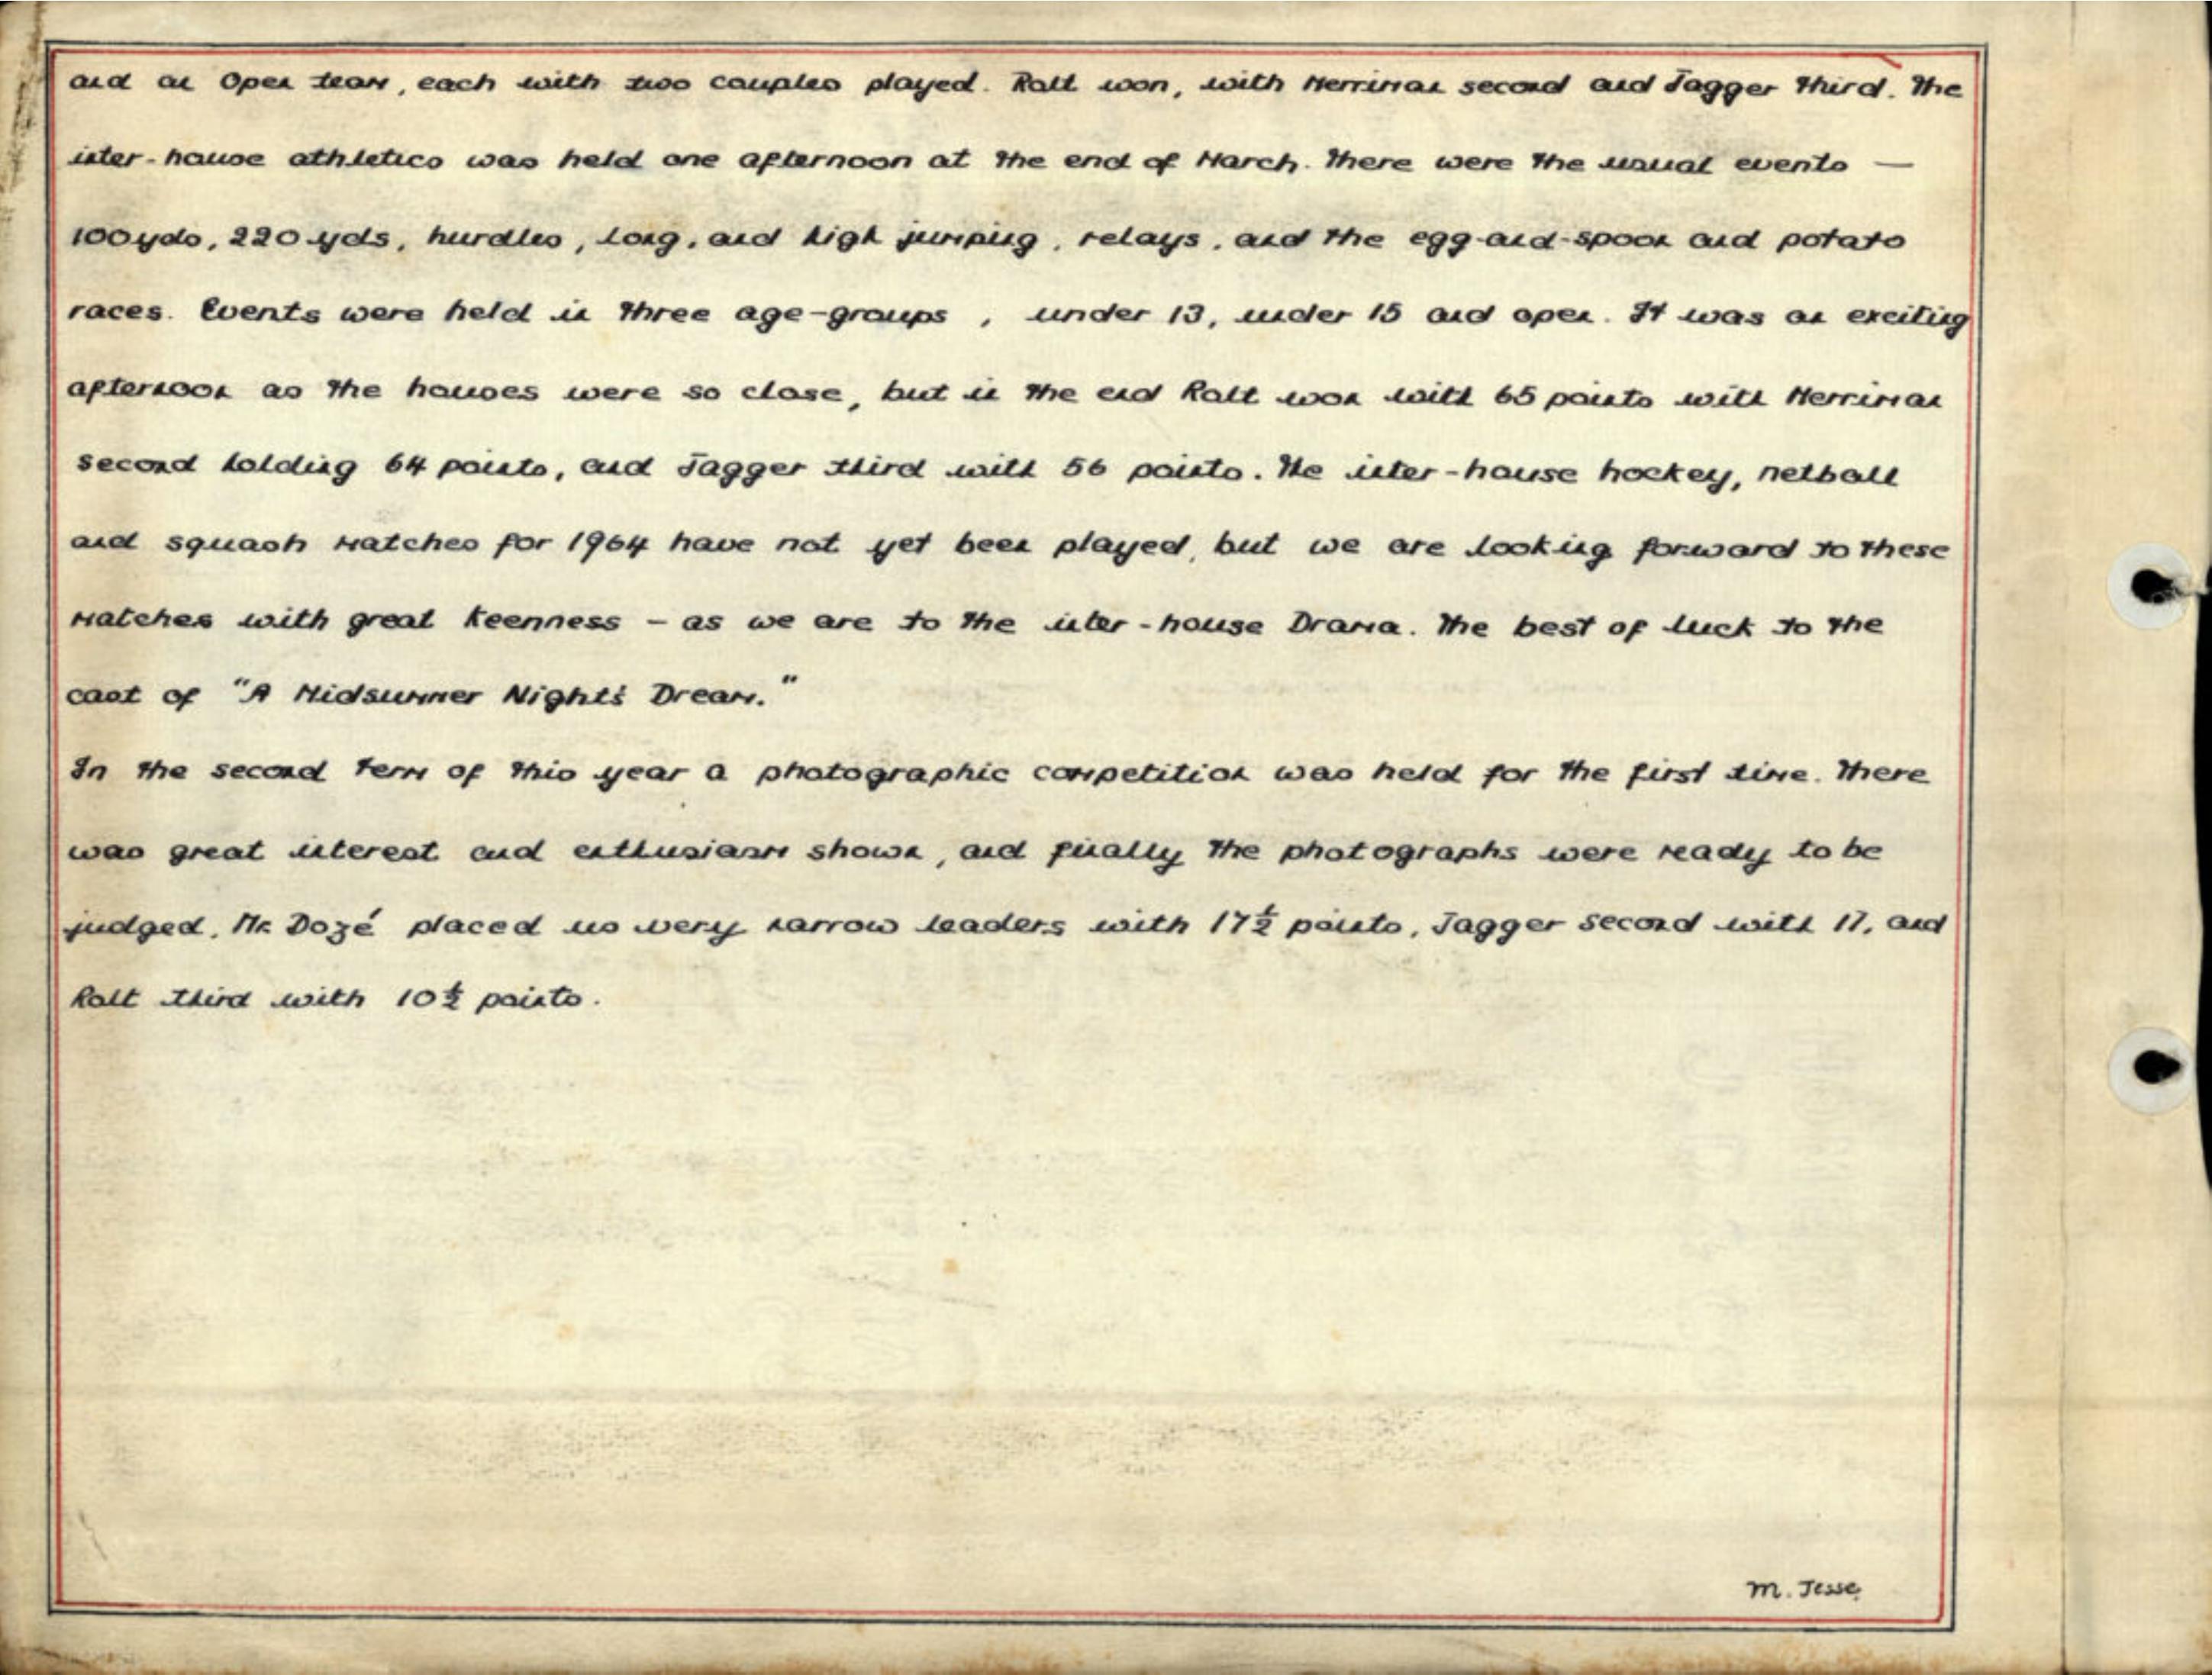 and an Open team, each with two couples played. Ralt won, with Merriman second and Jagger third. The
inter-house athletics was held one afternoon at the end of March. There were the usual events —
100yds, 220 yds, hurdles, long, and high jumping, relays, and the egg-and-spoon and potato
races. Events were held in three age-groups, under 13, under 15 and open. It was an exciting
afternoon as the houses were so close, but in the end Ralt won with 65 points with Merriman
second holding 64 points, and Jagger third with 56 points. The inter-house hockey, netball
and squash matches for 1964 have not yet been played, but we are looking forward to these
matches with great keenness - as we are to the inter-house Drama. The best of luck to the
cast of "A Midsummer Night's Dream."
In the second term of this year a photographic competition was held for the first time. There
was great interest and enthusiasm shown, and finally the photographs were ready to be
judged. Mr. Dozé placed us very narrow leaders with 17½ points, Jagger second with 17, and
Ralt third with 10½ points.
M. Jesse